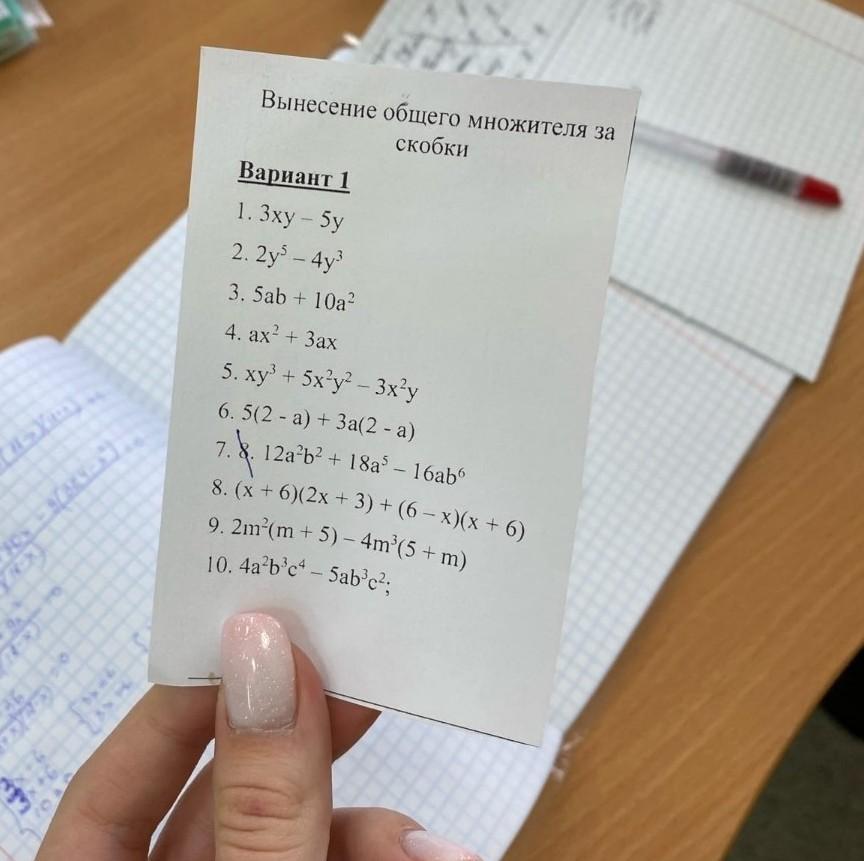 Вынесение общего множителя за
скобки
Вариант 1
1. 3xy – 5y
2. 2y⁵ – 4y³
3. 5ab + 10a²
4. ax² + 3ax
5. xy³ + 5x²y² – 3x²y
6. 5(2 - a) + 3a(2 - a)
7. 8. 12a²b² + 18a⁵ – 16ab⁶
8. (x + 6)(2x + 3) + (6 – x)(x + 6)
9. 2m²(m + 5) – 4m³(5 + m)
10. 4a²b³c⁴ – 5ab³c²;